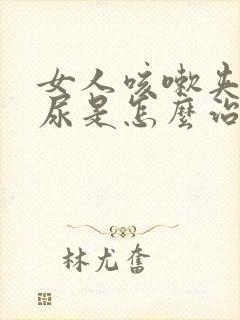 女人咳嗽失
尿是怎麼治
林尤奮